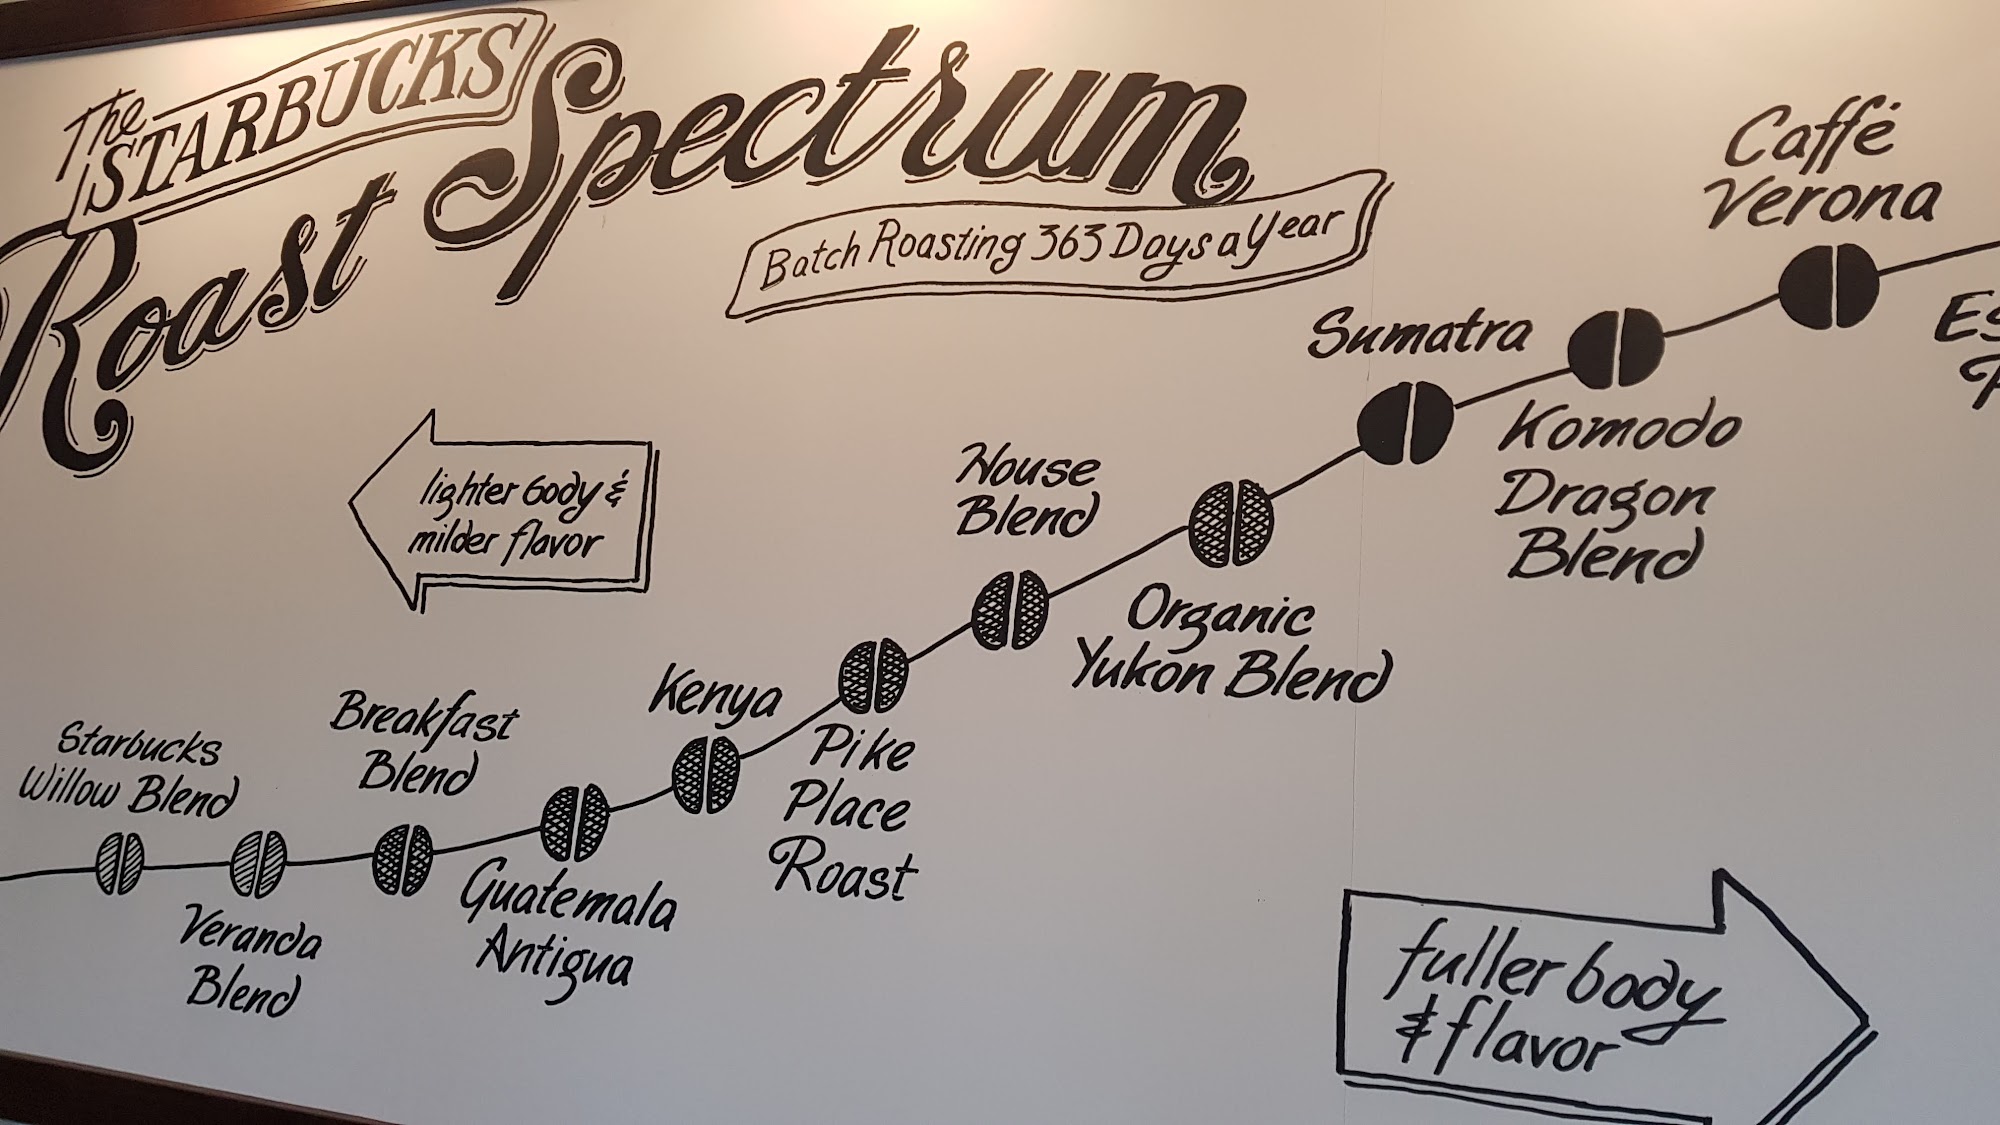 The
STARBUCKS
Roast Spectrum
Batch Roasting 363 Days a Year
lighter body &
milder flavor
Starbucks
Willow Blend
Veranda
Blend
Breakfast
Blend
Guatemala
Antigua
Kenya
Pike
Place
Roast
House
Blend
Organic
Yukon Blend
Sumatra
Komodo
Dragon
Blend
Caffé
Verona
fuller body
& flavor